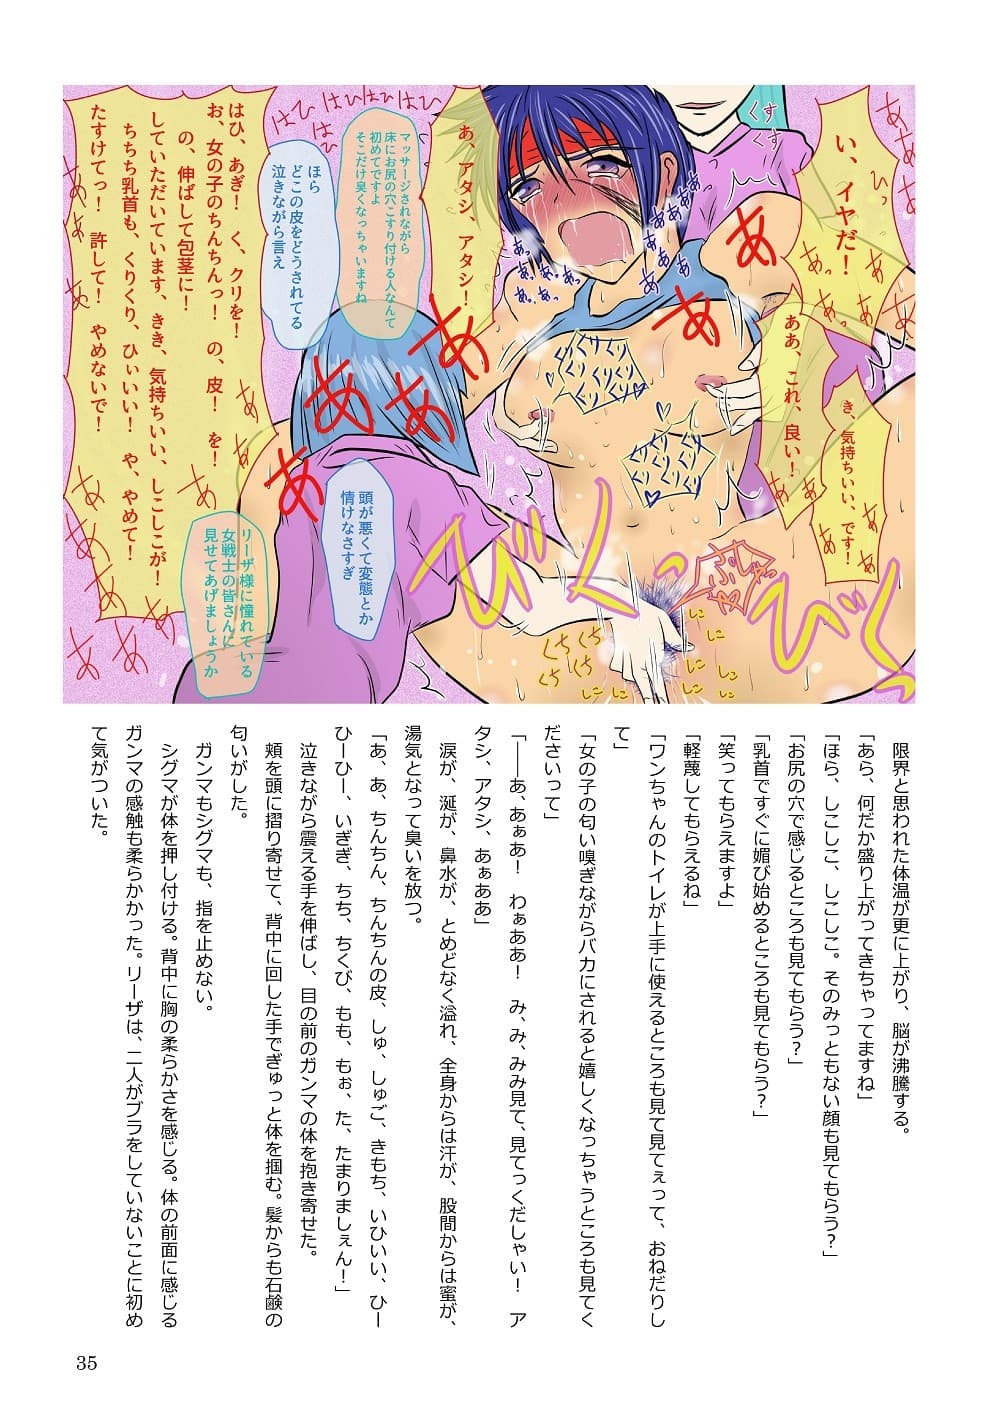 い、イヤだ!
ああ、これ、良い!
き、気持ちいい、です!
くすくす
あ、アタシ、アタシ!
マッサージされながら
床にお尻の穴こすり付ける人なんて
初めてですよ
そこだけ臭くなっちゃいますね
ほら
どこの皮をどうされてる
泣きながら言え
はひはひはひはひはひ
はひ、あぎ! く、クリを!
お、女の子のちんちんっ! の、皮! を!
の、伸ばして包茎に!
していただいています、きき、気持ちいい、しこしこが!
ちちち乳首も、くりくり、ひぃいい! や、やめて!
たすけてっ! 許して! やめないで!
頭が悪くて変態とか
情けなさすぎ
リーザ様に憧れている
女戦士の皆さんに
見せてあげましょうか
びくっ
びくっ
くちくちくち
しこしこしこしこ
限界と思われた体温が更に上がり、脳が沸騰する。
「あら、何だか盛り上がってきちゃってますね」
「ほら、しこしこ、しこしこ。そのみっともない顔も見てもらう?」
「お尻の穴で感じるところも見てもらう?」
「乳首ですぐに媚び始めるところも見てもらう?」
「笑ってもらえますよ」
「軽蔑してもらえるね」
「ワンちゃんのトイレが上手に使えるところも見て見てぇって、おねだりし
て」
「女の子の匂い嗅ぎながらバカにされると嬉しくなっちゃうところも見てく
ださいって」
「――あ、あぁあ! わぁああ! み、み、みみ見て、見てっくだしゃい! ア
タシ、アタシ、あぁああ」
涙が、涎が、鼻水が、とめどなく溢れ、全身からは汗が、股間からは蜜が、
湯気となって臭いを放つ。
「あ、あ、ちんちん、ちんちんの皮、しゅ、しゅご、きもち、いひいい、ひー
ひーひー、いぎぎ、ちち、ちくび、もも、もぉ、た、たまりましぇん!」
泣きながら震える手を伸ばし、目の前のガンマの体を抱き寄せた。
頬を頭に摺り寄せて、背中に回した手でぎゅっと体を掴む。髪からも石鹸の
匂いがした。
ガンマもシグマも、指を止めない。
シグマが体を押し付ける。背中に胸の柔らかさを感じる。体の前面に感じる
ガンマの感触も柔らかかった。リーザは、二人がブラをしていないことに初め
て気がついた。
35